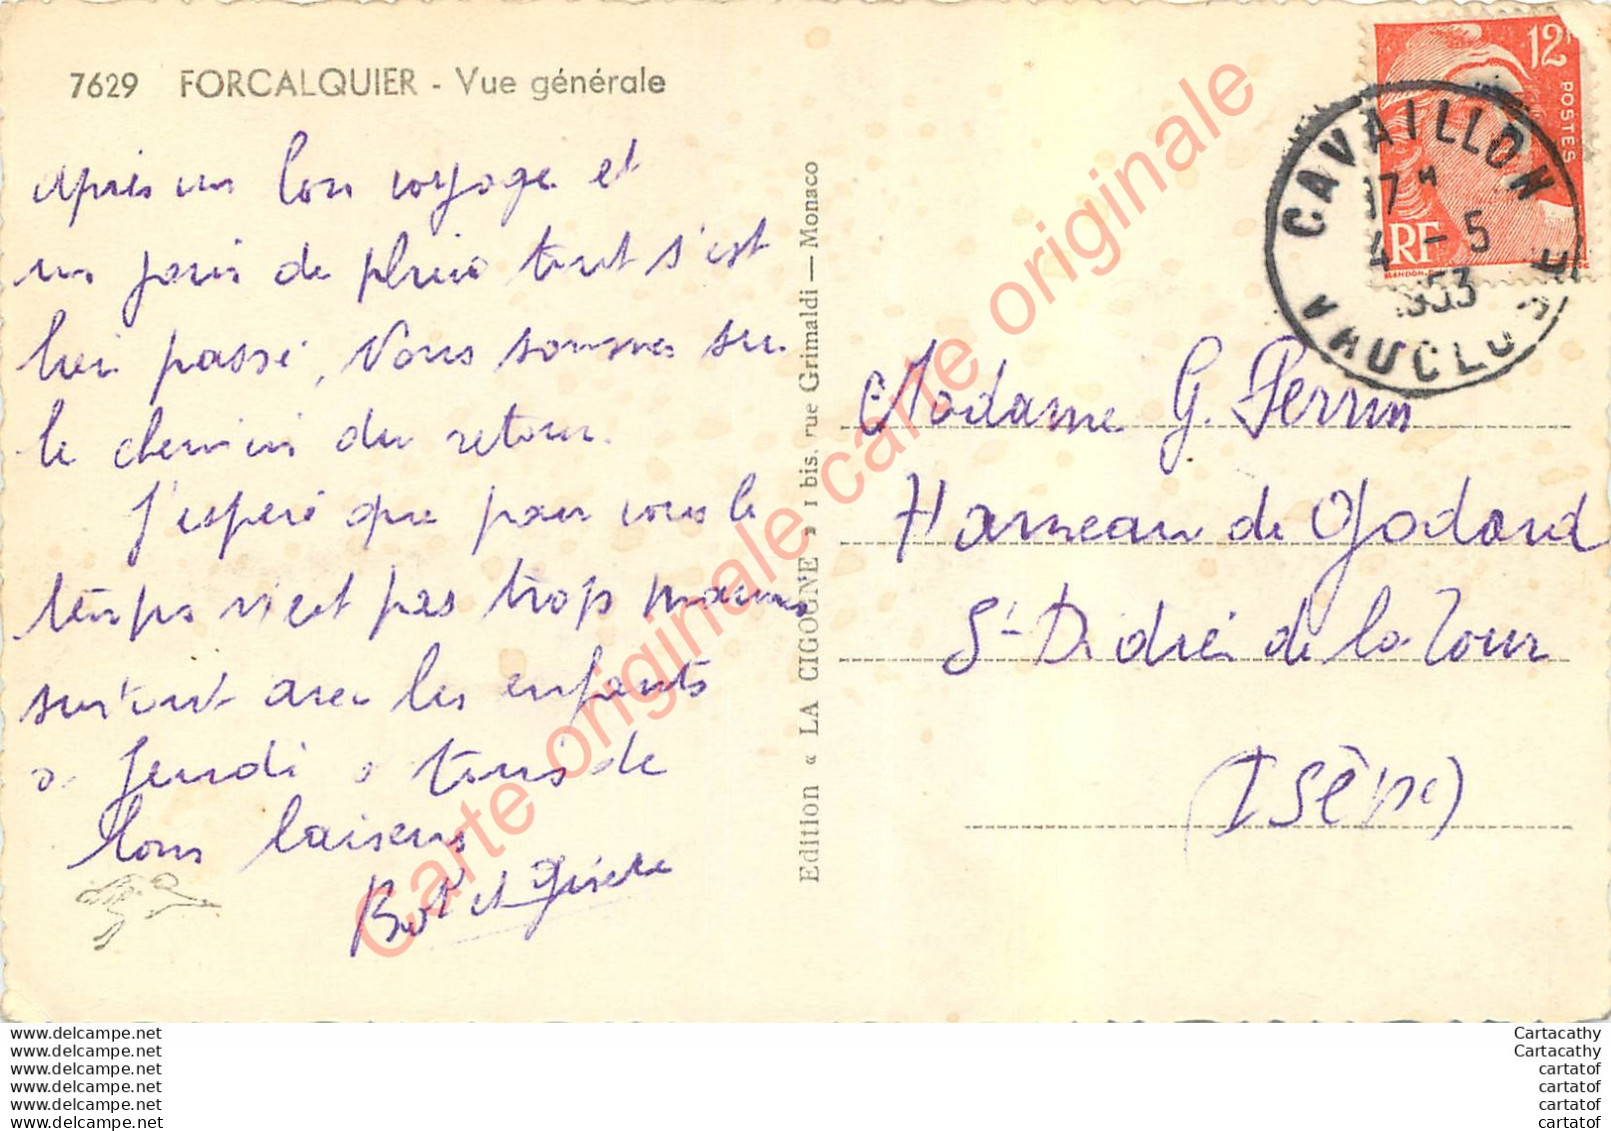 7629 FORCALQUIER - Vue générale
après un bon voyage et
un jour de pluie tout s'est
bien passé, Nous sommes sur
le chemin du retour.
J'espère que pour vous le
temps n'est pas trop mauvais
surtout avec les enfants
a Jeudi a tous de
bons baisers
et Gisèle
Edition « LA CIGOGNE » 1 bis, rue Grimaldi — Monaco
12F
POSTES
RF
CAVAILLON
17H
4 -5
1953
VAUCLUSE
Madame G. Perrin
Hameau de Godard
St Didier de la Tour
(Isère)
Carte originale carte originale carte originale
www.delcampe.net
www.delcampe.net
www.delcampe.net
www.delcampe.net
www.delcampe.net
www.delcampe.net
Cartacathy
Cartacathy
cartatof
cartatof
cartatof
cartatof